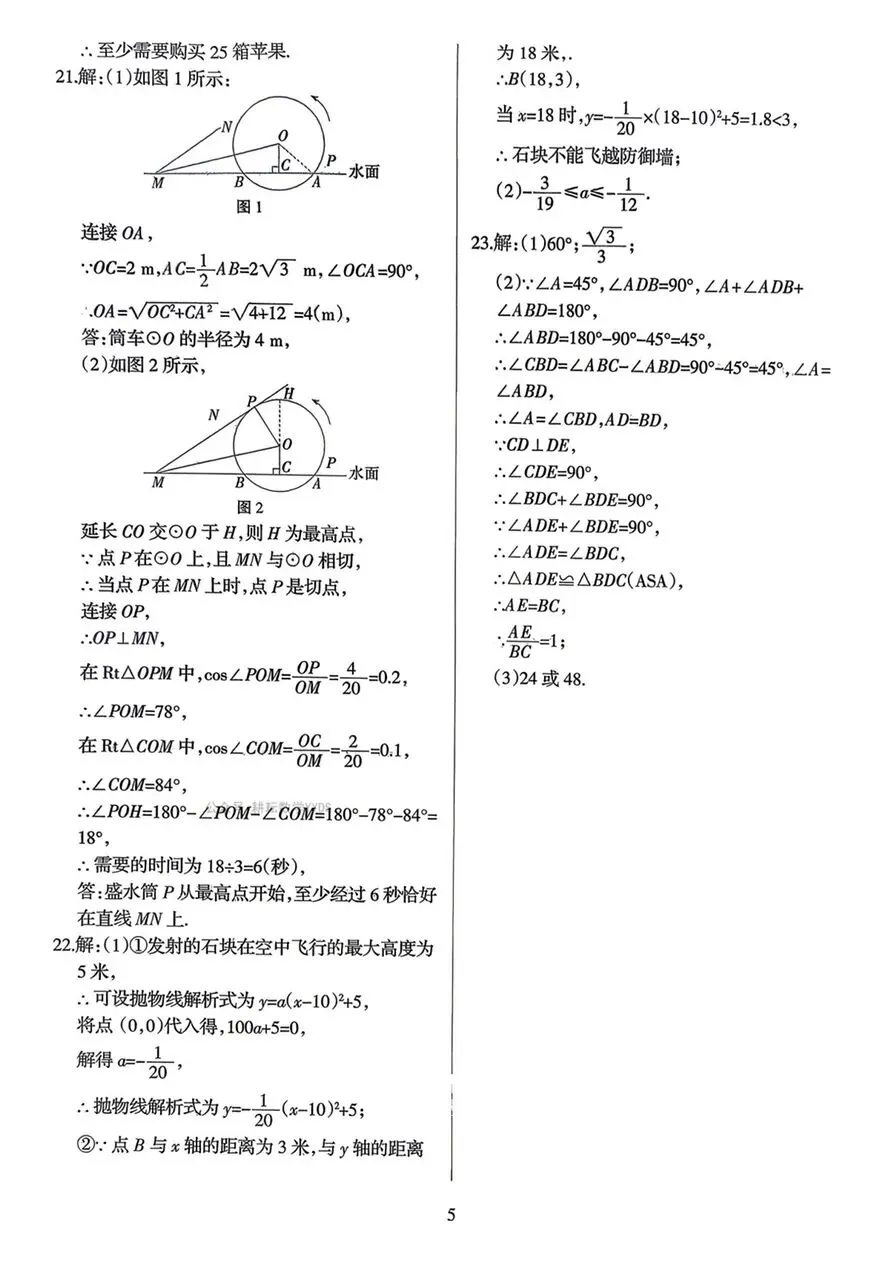 ∴至少需要购买 25 箱苹果.
21.解:(1)如图 1 所示:
N
O
C
P
M
B
A
水面
图 1
连接 OA,
∵OC=2 m,AC=1/2AB=2√3 m,∠OCA=90°,
∴OA=√(OC²+CA²)=√(4+12)=4(m),
答:筒车⊙O 的半径为 4 m,
(2)如图 2 所示,
P
H
N
O
C
P
M
B
A
水面
图 2
延长 CO 交⊙O 于 H,则 H 为最高点,
∵点 P 在⊙O 上,且 MN 与⊙O 相切,
∴当点 P 在 MN 上时,点 P 是切点,
连接 OP,
∴OP⊥MN,
在 Rt△OPM 中,cos∠POM=OP/OM=4/20=0.2,
∴∠POM=78°,
在 Rt△COM 中,cos∠COM=OC/OM=2/20=0.1,
∴∠COM=84°,
公众号·耕耘数学YYDS
∴∠POH=180°-∠POM-∠COM=180°-78°-84°=
18°,
∴需要的时间为 18÷3=6(秒),
答:盛水筒 P 从最高点开始,至少经过 6 秒恰好
在直线 MN 上.
22.解:(1)①发射的石块在空中飞行的最大高度为
5 米,
∴可设抛物线解析式为 y=a(x-10)²+5,
将点 (0,0)代入得,100a+5=0,
解得 a=-1/20,
∴抛物线解析式为 y=-1/20(x-10)²+5;
②∵点 B 与 x 轴的距离为 3 米,与 y 轴的距离
为 18 米,.
∴B(18,3),
当 x=18 时,y=-1/20×(18-10)²+5=1.8<3,
∴石块不能飞越防御墙;
(2)-3/19≤a≤-1/12.
23.解:(1)60°;√3/3;
(2)∵∠A=45°,∠ADB=90°,∠A+∠ADB+
∠ABD=180°,
∴∠ABD=180°-90°-45°=45°,
∴∠CBD=∠ABC-∠ABD=90°-45°=45°,∠A=
∠ABD,
∴∠A=∠CBD,AD=BD,
∵CD⊥DE,
∴∠CDE=90°,
∴∠BDC+∠BDE=90°,
∵∠ADE+∠BDE=90°,
∴∠ADE=∠BDC,
∴△ADE≌△BDC(ASA),
∴AE=BC,
∵AE/BC=1;
(3)24 或 48.
5